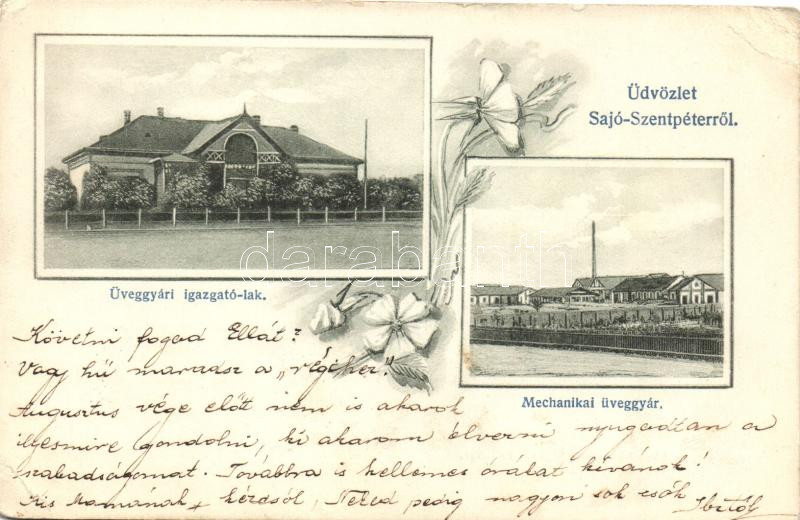 Üdvözlet
Sajó-Szentpéterről.
Üveggyári igazgató-lak.
Mechanikai üveggyár.
darabanth
Követni fogod Ellát?
Vagy hű maradsz a „régihez".
Augusztus vége előtt nem is akarok
ilyesmire gondolni, ki akarom élvezni nyugodtan a
szabadságomat. Továbbra is kellemes órákat kívánok!
Kis Mamának kézcsók, Neked pedig nagyon sok csók